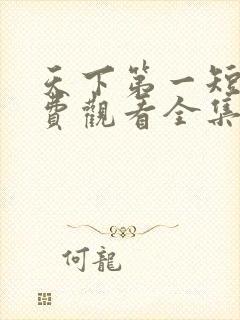 天下第一短
費觀看全集
何龍